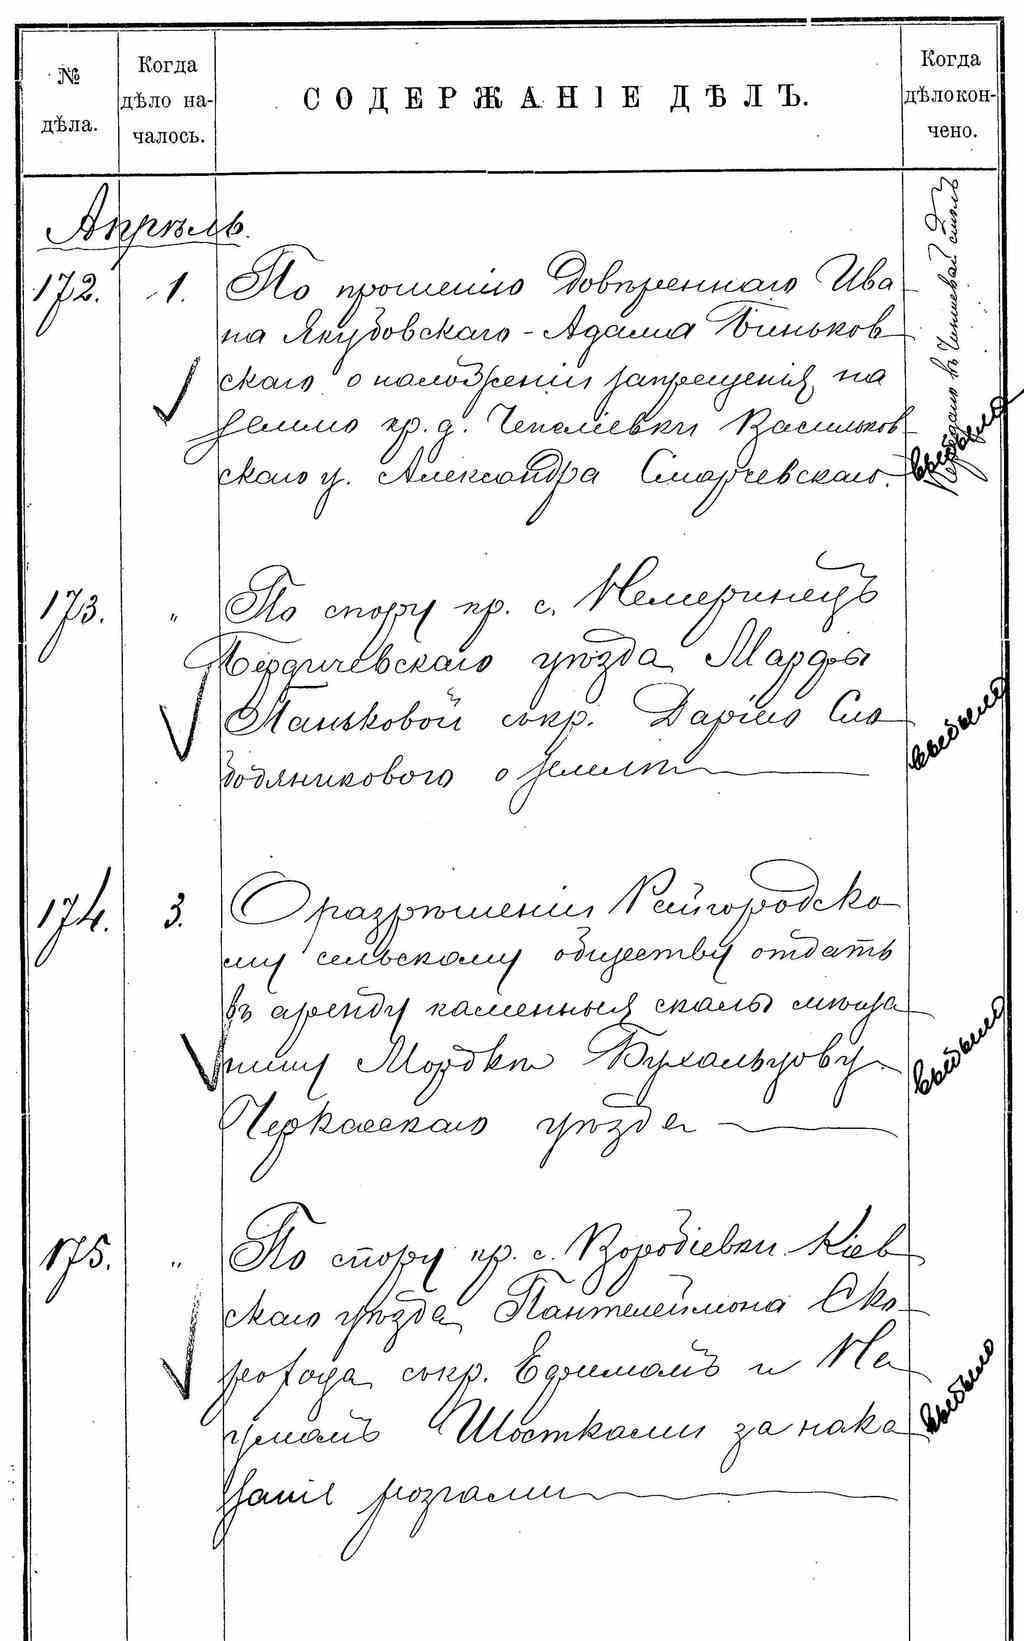 № дѣла.
Когда дѣло началось.
СОДЕРЖАНІЕ ДѢЛЪ.
Когда дѣло кончено.
Апрѣль.
172. 1. По прошенію довѣреннаго Ива
на Якубовскаго - Адама Биньков
скаго о наложеніи запрещенія на
землю кр. д. Чепеліевки Васильков
скаго у. Александра Смарчевскаго.
Передано въ Чиншевой столъ
выбыло
173. " По спору кр. с. Немеринецъ
Бердичевскаго уѣзда Марфы
Паньковой съ кр. Даріею Сло
бодяниковою о землѣ
выбыло
174. 3. О разрѣшеніи Райгородско
му сельскому обществу отдать
въ аренду каменныя скалы мѣща
нину Мордкѣ Бухальцову
Черкасскаго уѣзда
выбыло
175. " По спору кр. с. Воробіевки Кіев
скаго уѣзда Пантелеймона Ско
рохода съ кр. Ефимомъ и На
умомъ Шостками за нака
заніе розгами
выбыло